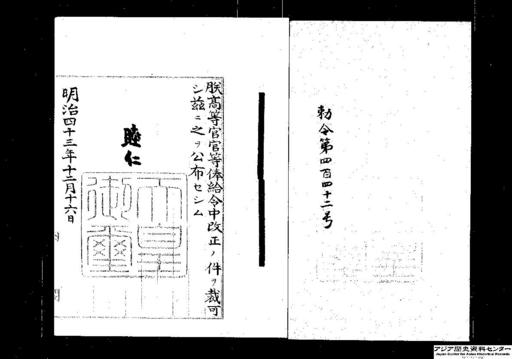 勅令第四百四十二号
朕高等官官等俸給令中改正ノ件ヲ裁可
シ茲ニ之ヲ公布セシム
睦仁
天皇御璽
明治四十三年十二月十六日
アジア歴史資料センター
Japan Center for Asian Historical Records